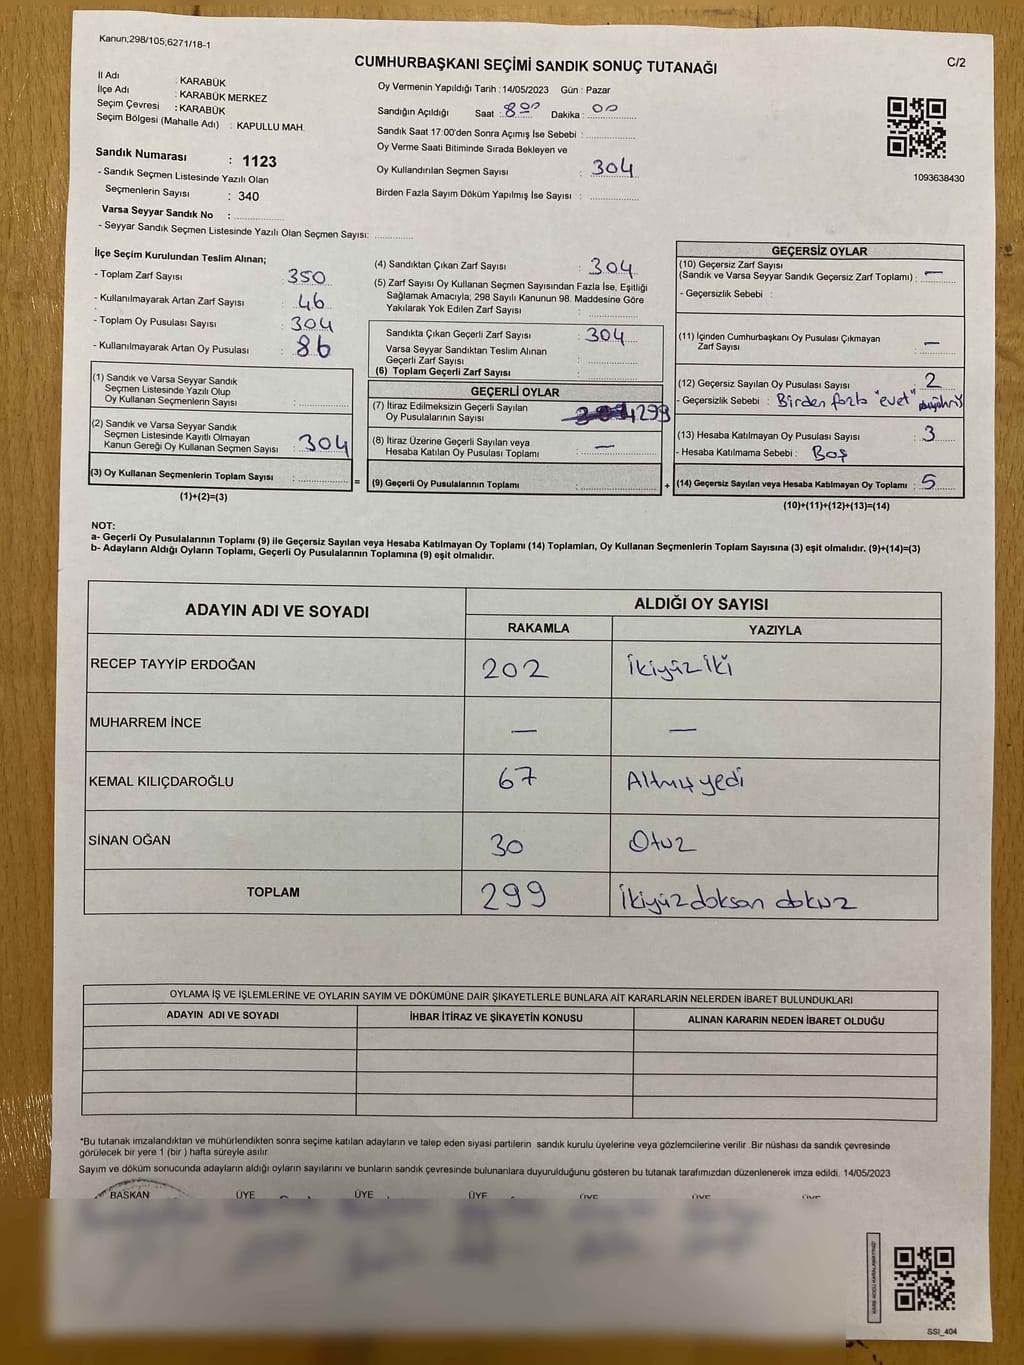 Kanun,298/105,6271/18-1
C/2
CUMHURBAŞKANI SEÇİMİ SANDIK SONUÇ TUTANAĞI
İl Adı : KARABÜK
İlçe Adı : KARABÜK MERKEZ
Seçim Çevresi : KARABÜK
Seçim Bölgesi (Mahalle Adı) : KAPULLU MAH.
Sandık Numarası : 1123
- Sandık Seçmen Listesinde Yazılı Olan
Seçmenlerin Sayısı : 340
Varsa Seyyar Sandık No :
- Seyyar Sandık Seçmen Listesinde Yazılı Olan Seçmen Sayısı:
Oy Vermenin Yapıldığı Tarih : 14/05/2023 Gün : Pazar
Sandığın Açıldığı Saat : 8:00 Dakika : 00
Sandık Saat 17:00'den Sonra Açımış İse Sebebi :
Oy Verme Saati Bitiminde Sırada Bekleyen ve
Oy Kullandırılan Seçmen Sayısı : 304
Birden Fazla Sayım Döküm Yapılmış İse Sayısı :
1093638430
İlçe Seçim Kurulundan Teslim Alınan;
- Toplam Zarf Sayısı : 350
- Kullanılmayarak Artan Zarf Sayısı : 46
- Toplam Oy Pusulası Sayısı : 304
- Kullanılmayarak Artan Oy Pusulası : 86
(1) Sandık ve Varsa Seyyar Sandık
Seçmen Listesinde Yazılı Olup
Oy Kullanan Seçmenlerin Sayısı :
(2) Sandık ve Varsa Seyyar Sandık
Seçmen Listesinde Kayıtlı Olmayan
Kanun Gereği Oy Kullanan Seçmen Sayısı : 304
(3) Oy Kullanan Seçmenlerin Toplam Sayısı :
(1)+(2)=(3)
=
(4) Sandıktan Çıkan Zarf Sayısı : 304
(5) Zarf Sayısı Oy Kullanan Seçmen Sayısından Fazla İse, Eşitliği
Sağlamak Amacıyla; 298 Sayılı Kanunun 98. Maddesine Göre
Yakılarak Yok Edilen Zarf Sayısı :
Sandıkta Çıkan Geçerli Zarf Sayısı : 304
Varsa Seyyar Sandıktan Teslim Alınan
Geçerli Zarf Sayısı :
(6) Toplam Geçerli Zarf Sayısı :
GEÇERLİ OYLAR
(7) İtiraz Edilmeksizin Geçerli Sayılan
Oy Pusulalarının Sayısı : 299
(8) İtiraz Üzerine Geçerli Sayılan veya
Hesaba Katılan Oy Pusulası Toplamı : —
(9) Geçerli Oy Pusulalarının Toplamı :
+
GEÇERSİZ OYLAR
(10) Geçersiz Zarf Sayısı
(Sandık ve Varsa Seyyar Sandık Geçersiz Zarf Toplamı) : —
- Geçersizlik Sebebi :
(11) İçinden Cumhurbaşkanı Oy Pusulası Çıkmayan
Zarf Sayısı : —
(12) Geçersiz Sayılan Oy Pusulası Sayısı : 2
- Geçersizlik Sebebi : Birden fazla "evet"
(13) Hesaba Katılmayan Oy Pusulası Sayısı : 3
- Hesaba Katılmama Sebebi : Boş
(14) Geçersiz Sayılan veya Hesaba Katılmayan Oy Toplamı : 5
(10)+(11)+(12)+(13)=(14)
NOT:
a- Geçerli Oy Pusulalarının Toplamı (9) ile Geçersiz Sayılan veya Hesaba Katılmayan Oy Toplamı (14) Toplamları, Oy Kullanan Seçmenlerin Toplam Sayısına (3) eşit olmalıdır. (9)+(14)=(3)
b- Adayların Aldığı Oyların Toplamı, Geçerli Oy Pusulalarının Toplamına (9) eşit olmalıdır.
ADAYIN ADI VE SOYADI
ALDIĞI OY SAYISI
RAKAMLA YAZIYLA
RECEP TAYYİP ERDOĞAN 202 İkiyüz iki
MUHARREM İNCE — —
KEMAL KILIÇDAROĞLU 67 Altmış yedi
SİNAN OĞAN 30 Otuz
TOPLAM 299 İkiyüz doksan dokuz
OYLAMA İŞ VE İŞLEMLERİNE VE OYLARIN SAYIM VE DÖKÜMÜNE DAİR ŞİKAYETLERLE BUNLARA AİT KARARLARIN NELERDEN İBARET BULUNDUKLARI
ADAYIN ADI VE SOYADI İHBAR İTİRAZ VE ŞİKAYETİN KONUSU ALINAN KARARIN NEDEN İBARET OLDUĞU
*Bu tutanak imzalandıktan ve mühürlendikten sonra seçime katılan adayların ve talep eden siyasi partilerin sandık kurulu üyelerine veya gözlemcilerine verilir. Bir nüshası da sandık çevresinde
görülecek bir yere 1 (bir ) hafta süreyle asılır.
Sayım ve döküm sonucunda adayların aldığı oyların sayılarını ve bunların sandık çevresinde bulunanlara duyurulduğunu gösteren bu tutanak tarafımızdan düzenlenerek imza edildi. 14/05/2023
BAŞKAN ÜYE ÜYE ÜYE ÜYE ÜYE ÜYE
KARE KODU KARALAMAYINIZ!
SSI_404